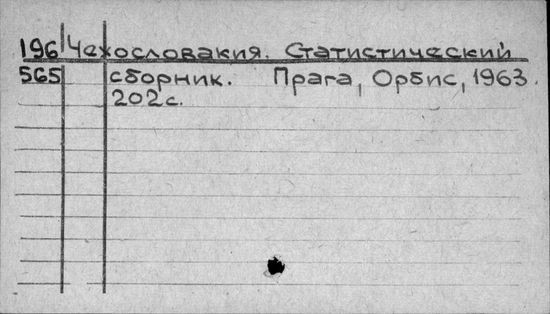 196 Чехословакия. Статистический
565 сборник. Прага, Орбис, 1963.
202с.